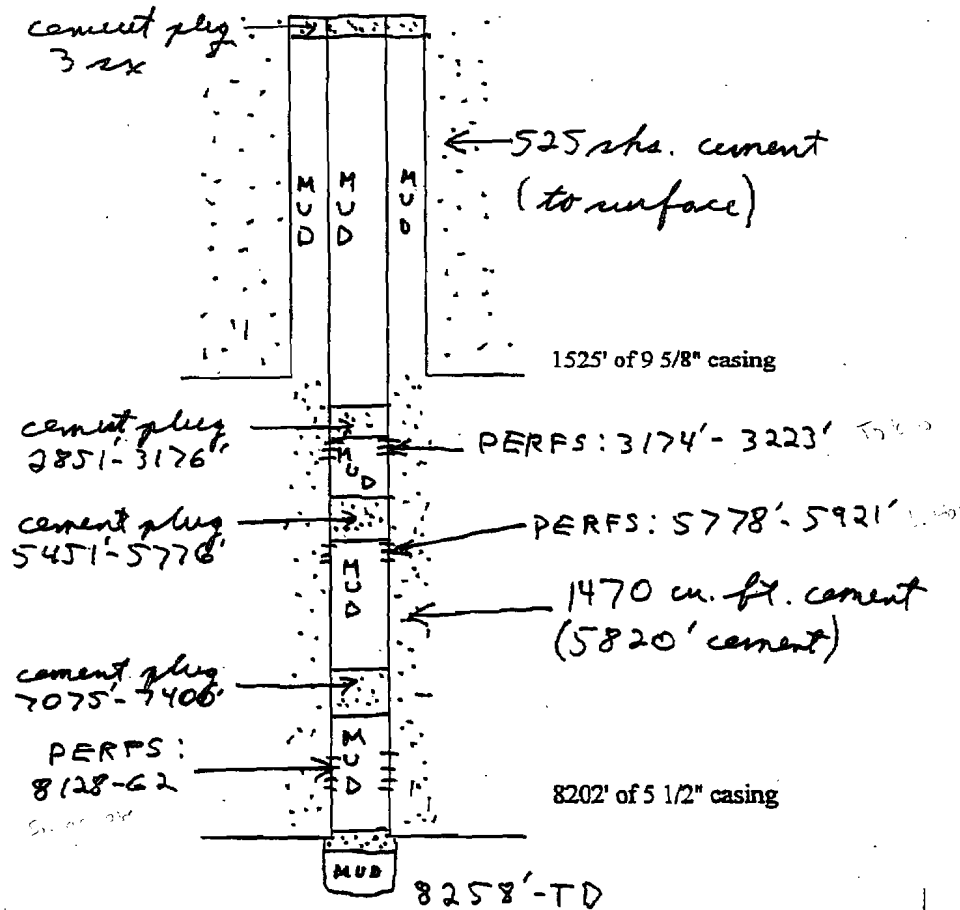 cement plug
3 sx
MUD
MUD
MUD
525 sks. cement
(to surface)
1525' of 9 5/8" casing
cement plug
2851'-3176'
MUD
PERFS: 3174'-3223'
cement plug
5451'-5776'
MUD
PERFS: 5778'-5921'
1470 cu. ft. cement
(5820' cement)
cement plug
7075'-7400'
MUD
PERFS:
8128-62
8202' of 5 1/2" casing
MUD
8258'-TD